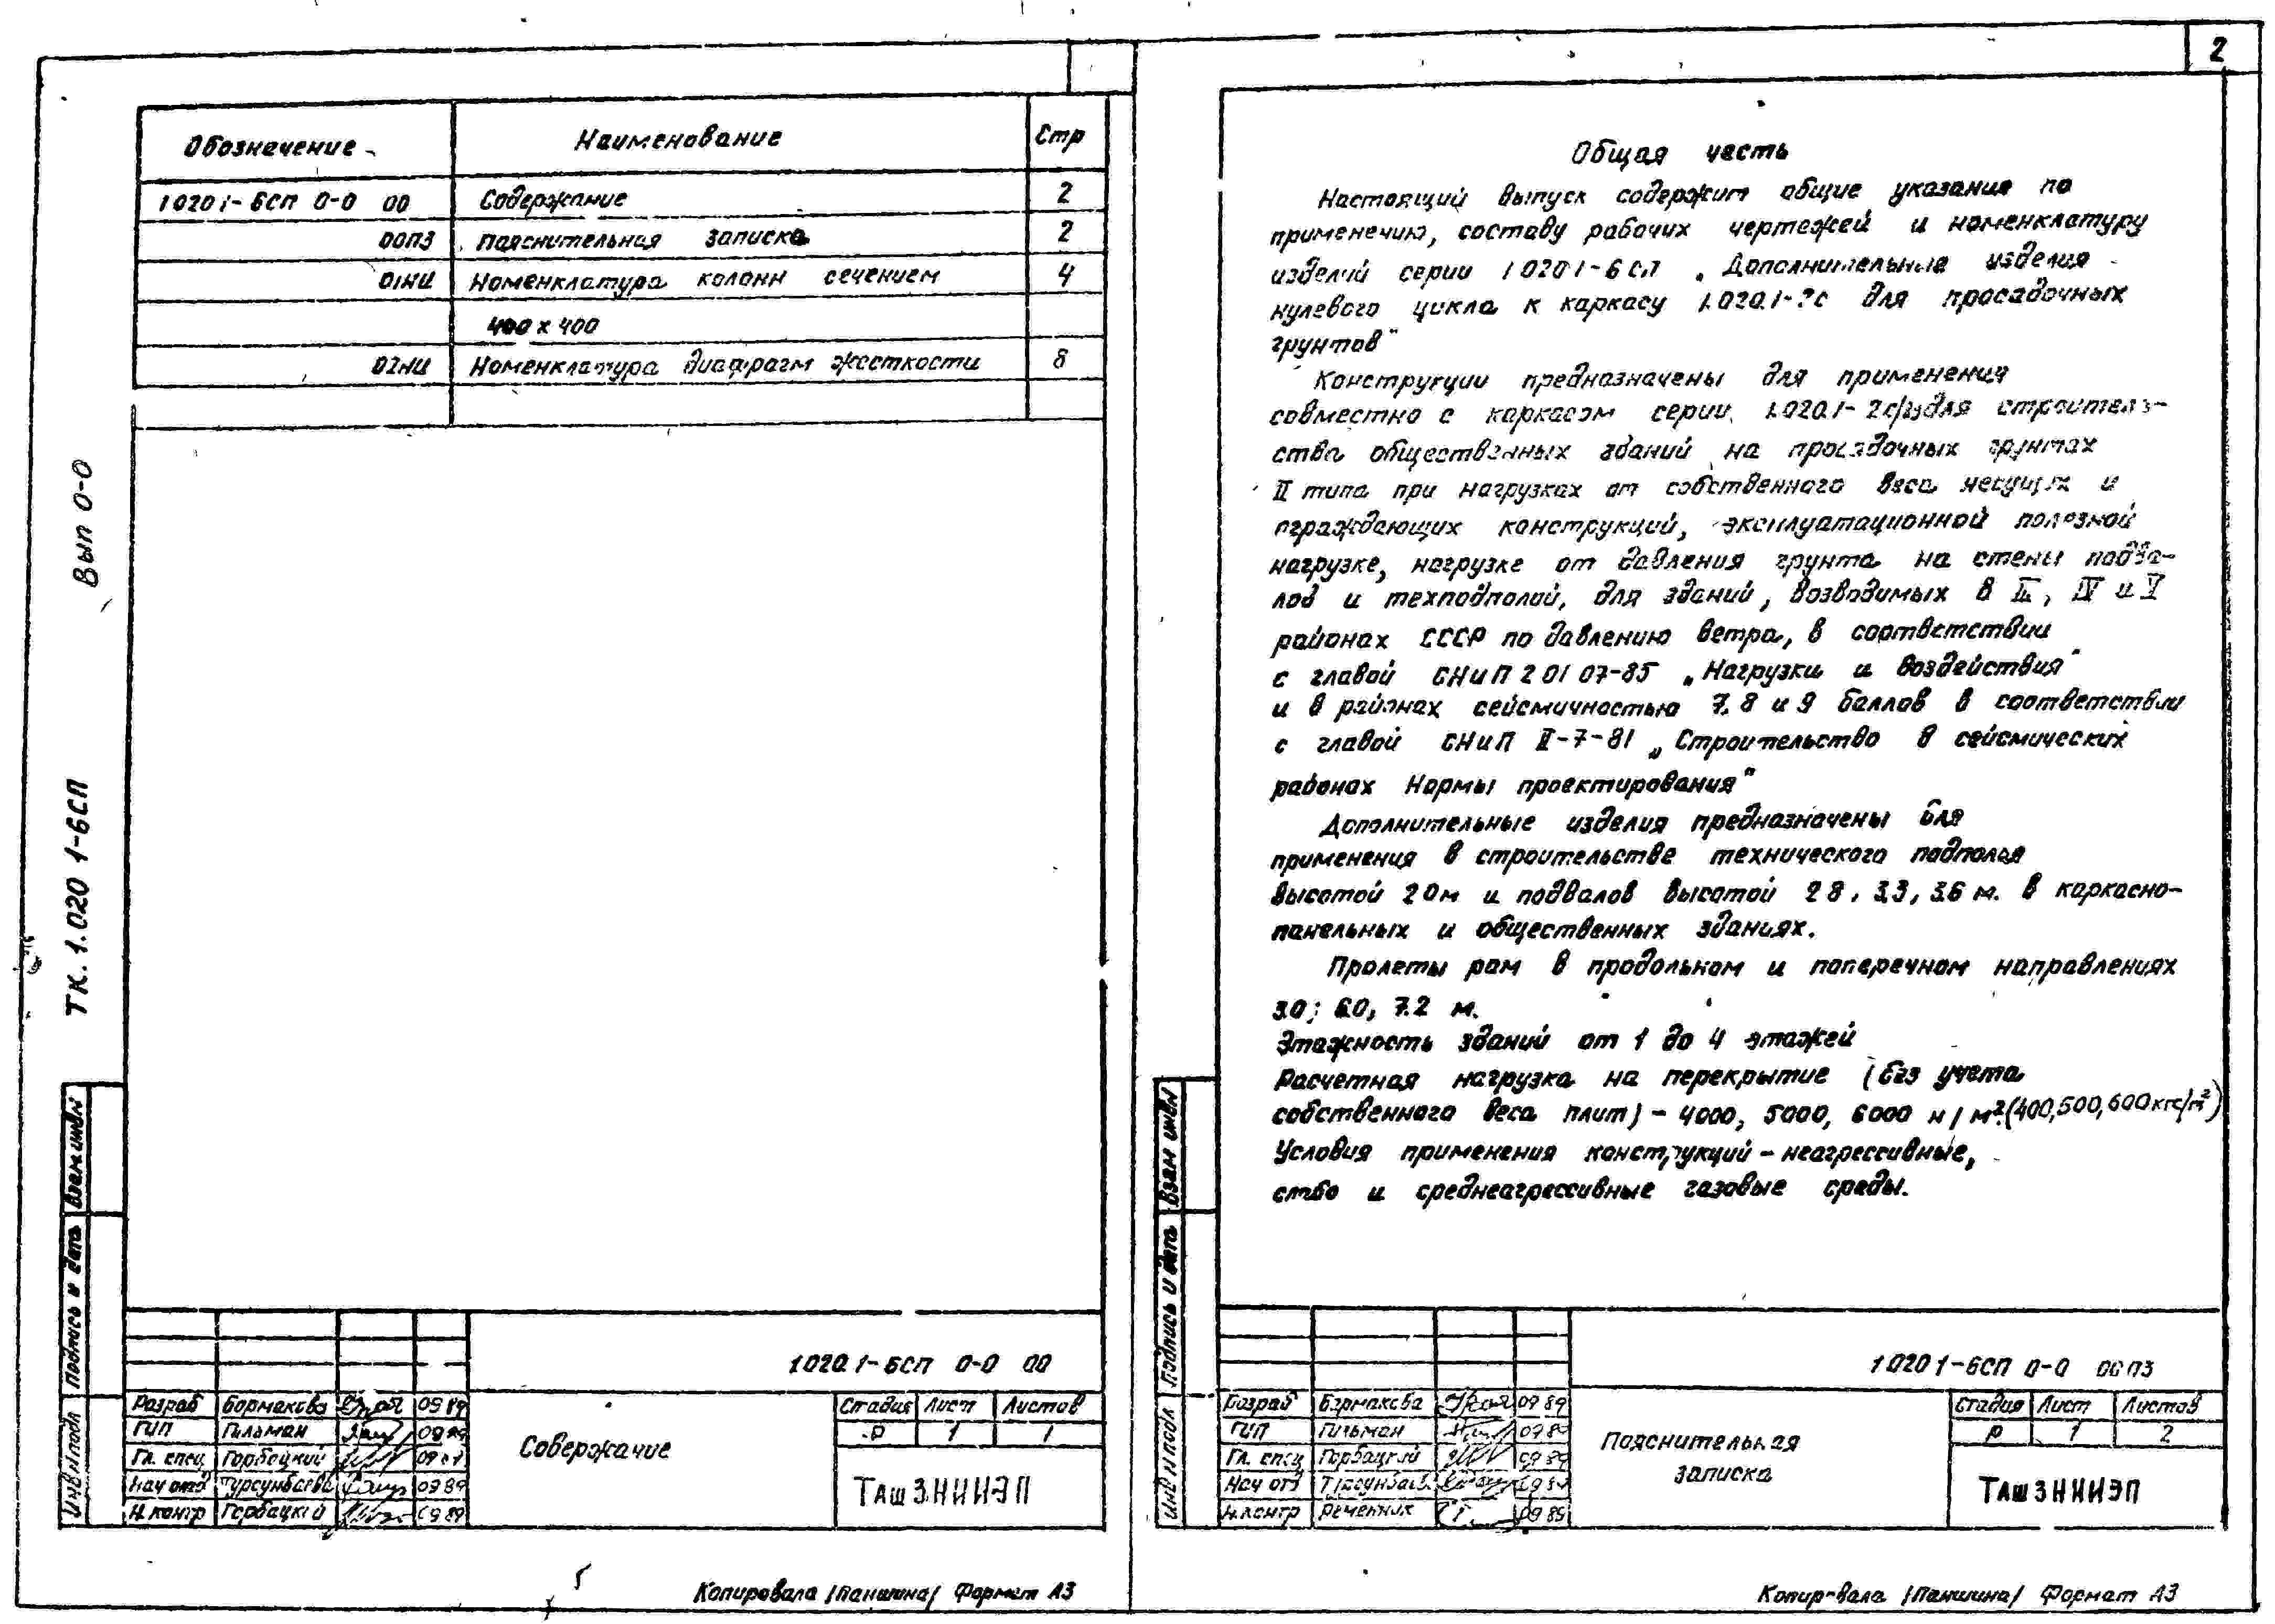 Обозначение Наименование Стр
1.020.1-6СП 0-0 00 Содержание 2
00ПЗ Пояснительная записка 2
01НИ Номенклатура колонн сечением 4
400 х 400
02НИ Номенклатура диафрагм жесткости 8
Вып 0-0
ТК. 1.020 1-6СП
Взам инв№
Подпись и дата
Инв № подл
1.020.1-6СП 0-0 00
Разраб Бормакова 09 89
ГИП Гильман 09 89
Гл. спец Горбацкий 09
Нач отд Турсунбаева 09 89
Н. контр Горбацкий 09 89
Содержание
Стадия Лист Листов
Р 1 1
ТашЗНИИЭП
Копировала /Паншина/ Формат А3
2
Общая часть
Настоящий выпуск содержит общие указания по
применению, составу рабочих чертежей и номенклатуру
изделий серии 1 020 1-6 сп „Дополнительные изделия
нулевого цикла к каркасу 1.020.1-2с для просадочных
грунтов"
Конструкции предназначены для применения
совместно с каркасом серии 1.020.1-2с/ для строитель-
ства общественных зданий на просадочных грунтах
II типа при нагрузках от собственного веса несущих и
ограждающих конструкций, эксплуатационной полезной
нагрузке, нагрузке от давления грунта на стены подва-
лов и техподполий, для зданий, возводимых в III, IV и V
районах СССР по давлению ветра, в соответствии
с главой СНиП 2 01 07-85 „Нагрузки и воздействия"
и в районах сейсмичностью 7, 8 и 9 баллов в соответствии
с главой СНиП II-7-81 „Строительство в сейсмических
районах Нормы проектирования"
Дополнительные изделия предназначены для
применения в строительстве технического подполья
высотой 2 0м и подвалов высотой 2 8, 3.3, 3.6 м. в каркасно-
панельных и общественных зданиях.
Пролеты рам в продольном и поперечном направлениях
3.0; 6.0, 7.2 м.
Этажность зданий от 1 до 4 этажей
Расчетная нагрузка на перекрытие (без учета
собственного веса плит) - 4000, 5000, 6000 н/м². (400,500,600 кгс/м²)
Условия применения конструкций - неагрессивные,
слабо и среднеагрессивные газовые среды.
Взам инв№
Подпись и дата
Инв № подл
1 020 1-6СП 0-0 00 ПЗ
Разраб Бормакова 09 89
ГИП Гильман 09 89
Гл. спец Горбацкий 09 89
Нач отд Турсунбаева 09 89
Н. контр Ременник 09 89
Пояснительная
записка
Стадия Лист Листов
Р 1 2
ТашЗНИИЭП
Копировала /Паншина/ Формат А3